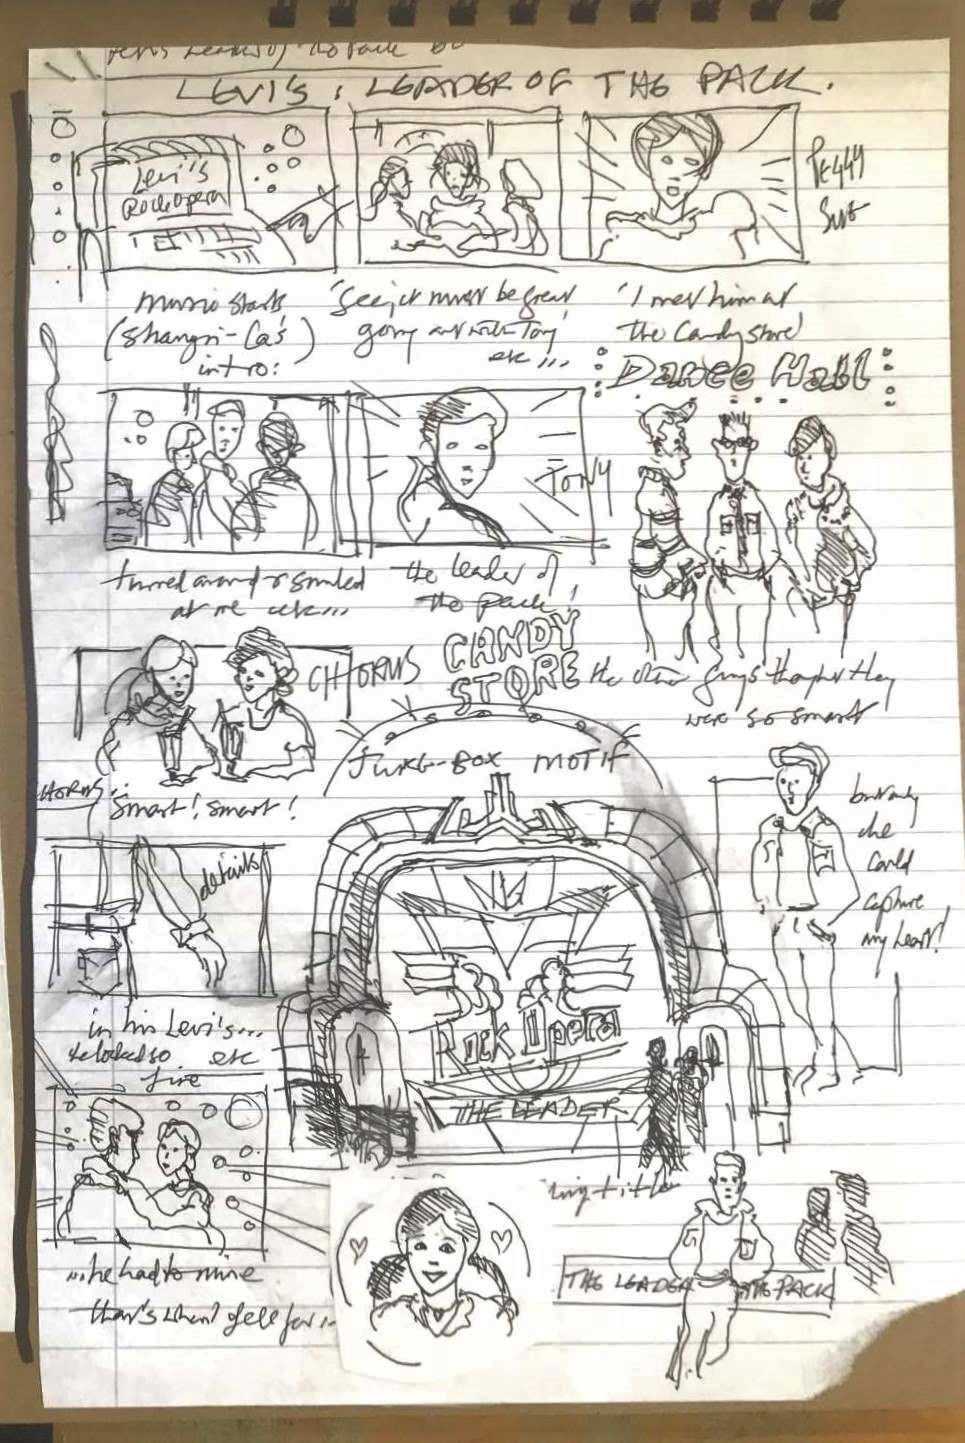 LEVI'S: LEADER OF THE PACK.
Levi's
Rock Opera
Peggy
Sue
music starts
(Shangri-La's)
intro:
'Gee, it must be great
going out with Tony'
etc...
'I met him at
the Candy store'
Dance Hall
Tony
turned around & smiled
at me etc...
the leader of
the pack!
CHORUS
CANDY
STORE
the other guys thought they
were so smart
JUKE-BOX MOTIF
CHORUS..
Smart! Smart!
but only
she
could
capture
my heart!
details
in his Levi's...
he looked so etc
fine
Rock Opera
THE LEADER
title
...he had to mine
that's when I fell for..
THE LEADER THE PACK